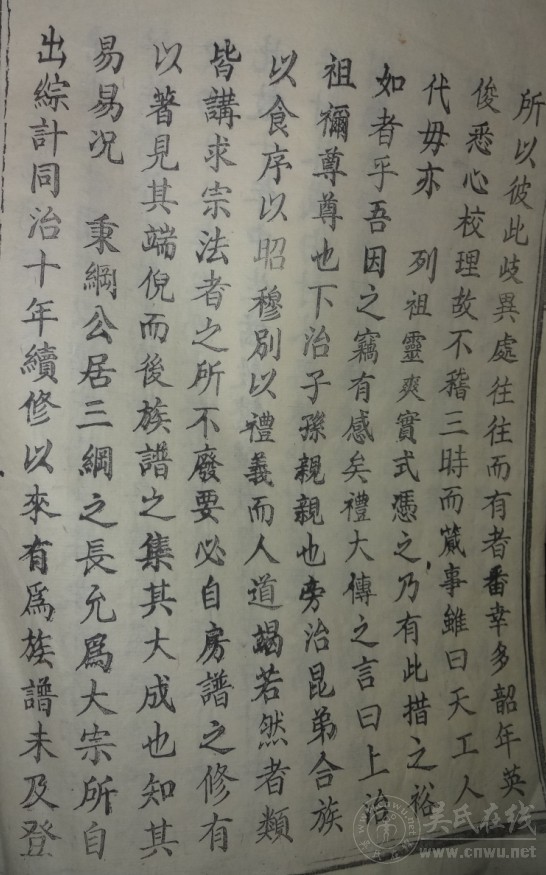 所以彼此歧異處往往而有者番幸多韶年英
俊悉心校理故不稽三時而蕆事雖曰天工人
代毋亦　列祖靈爽實式憑之乃有此措之裕
如者乎吾因之竊有感矣禮大傳之言曰上治
祖禰尊尊也下治子孫親親也旁治昆弟合族
以食序以昭穆別以禮義而人道竭若然者類
皆講求宗法者之所不廢要必自房譜之修有
以著見其端倪而後族譜之集其大成也知其
易易況　秉綱公居三綱之長允爲大宗所自
出綜計同治十年續修以來有爲族譜未及登
吴氏在线
www.cnwu.net